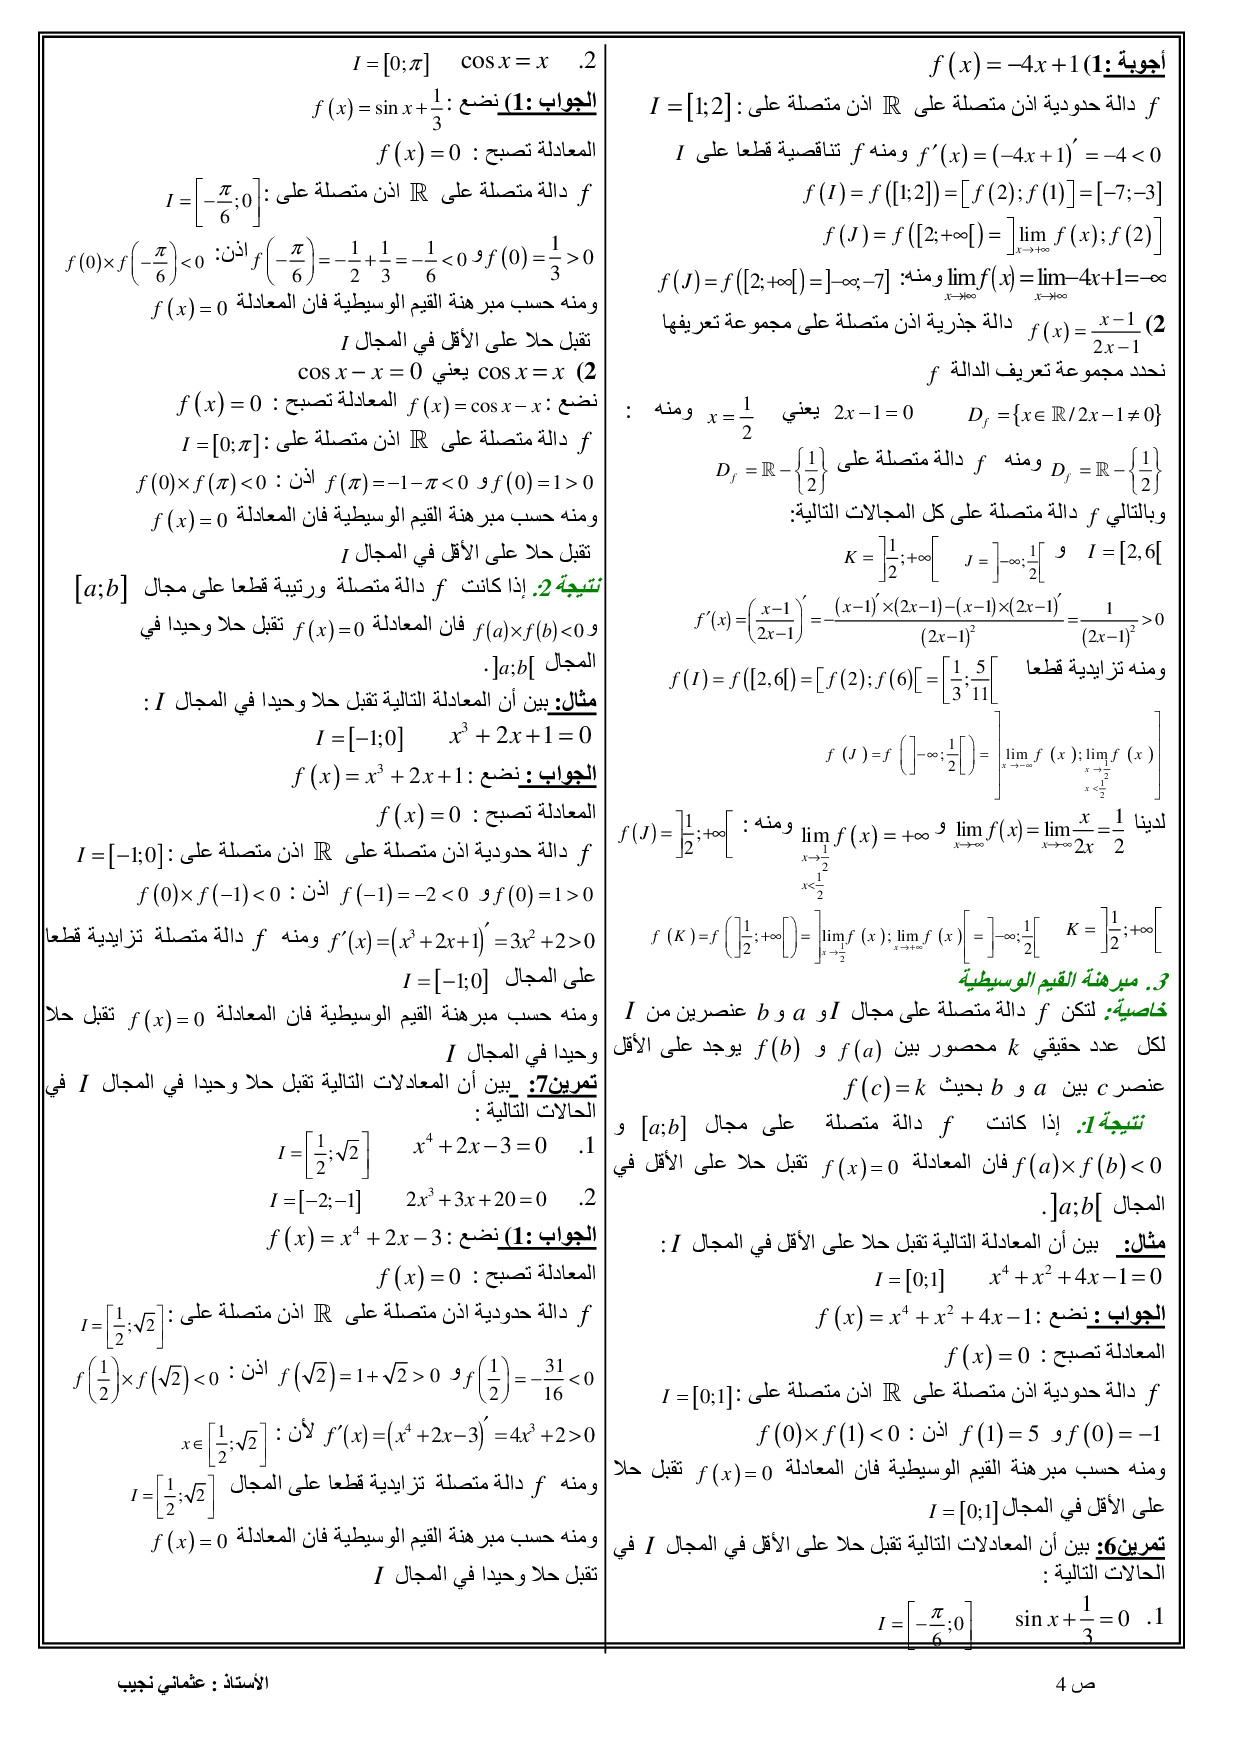 أجوبة :1) f(x) = −4x+1
f دالة حدودية اذن متصلة على ℝ اذن متصلة على : I = [1;2]
f′(x) = (−4x+1)′ = −4 < 0 ومنه f تناقصية قطعا على I
f(I) = f([1;2]) = [f(2); f(1)] = [−7;−3]
f(J) = f([2;+∞[) = ]lim x→+∞ f(x); f(2)]
lim x→+∞ f(x) = lim x→+∞ −4x+1 = −∞ ومنه: f(J) = f([2;+∞[) = ]−∞;−7]
2) f(x) = (x−1)/(2x−1) دالة جذرية اذن متصلة على مجموعة تعريفها
نحدد مجموعة تعريف الدالة f
D_f = {x ∈ ℝ / 2x−1 ≠ 0} 2x−1 = 0 يعني x = 1/2 ومنه :
D_f = ℝ − {1/2} ومنه f دالة متصلة على D_f = ℝ − {1/2}
وبالتالي f دالة متصلة على كل المجالات التالية:
I = [2,6[ و J = ]−∞; 1/2[ K = ]1/2; +∞[
f′(x) = ((x−1)/(2x−1))′ = −((x−1)′×(2x−1)−(x−1)×(2x−1)′)/(2x−1)² = 1/(2x−1)² > 0
ومنه تزايدية قطعا f(I) = f([2,6[) = [f(2); f(6)[ = [1/3; 5/11[
f(J) = f(]−∞; 1/2[) = ]lim x→−∞ f(x); lim x→1/2 x<1/2 f(x)]
لدينا lim x→−∞ f(x) = lim x→−∞ x/2x = 1/2 و lim x→1/2 x<1/2 f(x) = +∞ ومنه : f(J) = ]1/2; +∞[
K = ]1/2; +∞[ f(K) = f(]1/2; +∞[) = ]lim x→1/2 f(x); lim x→+∞ f(x)[ = ]−∞; 1/2[
3. مبرهنة القيم الوسيطية
خاصية: لتكن f دالة متصلة على مجال I و a و b عنصرين من I
لكل عدد حقيقي k محصور بين f(a) و f(b) يوجد على الأقل
عنصر c بين a و b بحيث f(c) = k
نتيجة1: إذا كانت f دالة متصلة على مجال [a;b] و
f(a)×f(b) < 0 فان المعادلة f(x) = 0 تقبل حلا على الأقل في
المجال ]a;b[ .
مثال: بين أن المعادلة التالية تقبل حلا على الأقل في المجال I :
x⁴ + x² + 4x − 1 = 0 I = [0;1]
الجواب : نضع : f(x) = x⁴ + x² + 4x − 1
المعادلة تصبح : f(x) = 0
f دالة حدودية اذن متصلة على ℝ اذن متصلة على : I = [0;1]
f(0) = −1 و f(1) = 5 اذن : f(0)×f(1) < 0
ومنه حسب مبرهنة القيم الوسيطية فان المعادلة f(x) = 0 تقبل حلا
على الأقل في المجال I = [0;1]
تمرين6: بين أن المعادلات التالية تقبل حلا على الأقل في المجال I في
الحالات التالية :
1. sin x + 1/3 = 0 I = [−π/6; 0]
2. cos x = x I = [0;π]
الجواب :1) نضع : f(x) = sin x + 1/3
المعادلة تصبح : f(x) = 0
f دالة متصلة على ℝ اذن متصلة على : I = [−π/6; 0]
f(0) = 1/3 > 0 و f(−π/6) = −1/2 + 1/3 = −1/6 < 0 اذن: f(0)×f(−π/6) < 0
ومنه حسب مبرهنة القيم الوسيطية فان المعادلة f(x) = 0
تقبل حلا على الأقل في المجال I
2) cos x = x يعني cos x − x = 0
نضع : f(x) = cos x − x المعادلة تصبح : f(x) = 0
f دالة متصلة على ℝ اذن متصلة على : I = [0;π]
f(0) = 1 > 0 و f(π) = −1−π < 0 اذن : f(0)×f(π) < 0
ومنه حسب مبرهنة القيم الوسيطية فان المعادلة f(x) = 0
تقبل حلا على الأقل في المجال I
نتيجة2: إذا كانت f دالة متصلة ورتيبة قطعا على مجال [a;b]
و f(a)×f(b) < 0 فان المعادلة f(x) = 0 تقبل حلا وحيدا في
المجال ]a;b[ .
مثال: بين أن المعادلة التالية تقبل حلا وحيدا في المجال I :
x³ + 2x + 1 = 0 I = [−1;0]
الجواب : نضع : f(x) = x³ + 2x + 1
المعادلة تصبح : f(x) = 0
f دالة حدودية اذن متصلة على ℝ اذن متصلة على : I = [−1;0]
f(0) = 1 > 0 و f(−1) = −2 < 0 اذن : f(0)×f(−1) < 0
f′(x) = (x³+2x+1)′ = 3x²+2 > 0 ومنه f دالة متصلة تزايدية قطعا
على المجال I = [−1;0]
ومنه حسب مبرهنة القيم الوسيطية فان المعادلة f(x) = 0 تقبل حلا
وحيدا في المجال I
تمرين7: بين أن المعادلات التالية تقبل حلا وحيدا في المجال I في
الحالات التالية :
1. x⁴ + 2x − 3 = 0 I = [1/2; √2]
2. 2x³ + 3x + 20 = 0 I = [−2;−1]
الجواب :1) نضع : f(x) = x⁴ + 2x − 3
المعادلة تصبح : f(x) = 0
f دالة حدودية اذن متصلة على ℝ اذن متصلة على : I = [1/2; √2]
f(1/2) = −31/16 < 0 و f(√2) = 1+√2 > 0 اذن : f(1/2)×f(√2) < 0
f′(x) = (x⁴+2x−3)′ = 4x³+2 > 0 لأن : x ∈ [1/2; √2]
ومنه f دالة متصلة تزايدية قطعا على المجال I = [1/2; √2]
ومنه حسب مبرهنة القيم الوسيطية فان المعادلة f(x) = 0
تقبل حلا وحيدا في المجال I
ص 4
الأستاذ : عثماني نجيب